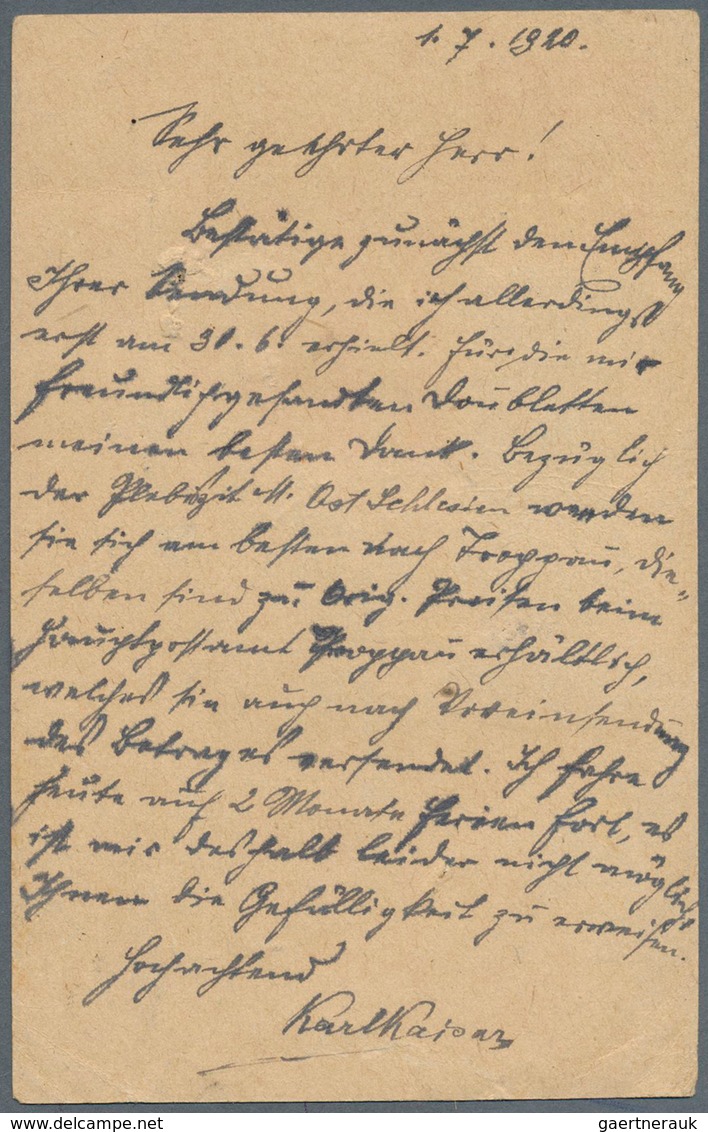 1. 7. 1920.
Sehr geehrter Herr!
Bestätige zunächst den Empfang
Ihrer Sendung, die ich allerdings
erst am 30. 6. erhielt. Für die mir
freundlichst gesandten Doubletten
meinen besten Dank. Bezüglich
der Plebiszit M. Ost Schlesien wenden
sie sich am besten nach Troppau, die-
selben sind zu Orig. Preisen beim
Hauptpostamt Troppau erhältlich,
welches sie auch nach Voreinsendung
des Betrages versendet. Ich fahre
heute auf 2 Monate Ferien fort, es
ist mir deshalb leider nicht möglich
Ihnen die Gefälligkeit zu erweisen.
Hochachtend
Karl Kaiser
delcampe.net
gaertnerauk